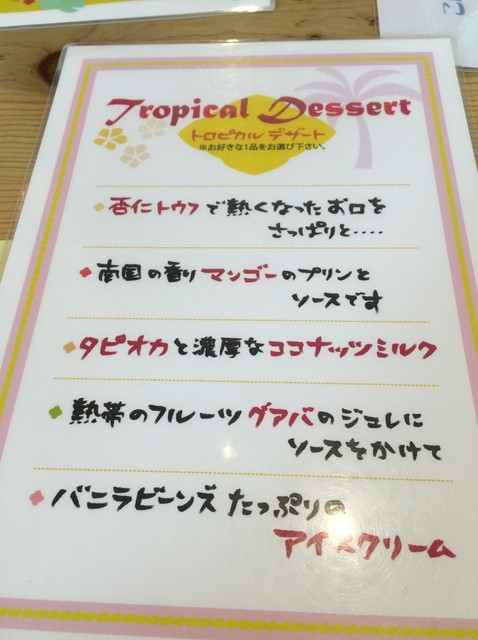 Tropical Dessert
トロピカルデザート
※お好きな1品をお選び下さい。
杏仁トウフで熱くなったお口を
さっぱりと····
南国の香りマンゴーのプリンと
ソースです
タピオカと濃厚なココナッツミルク
熱帯のフルーツグアバのジュレに
ソースをかけて
バニラビーンズたっぷりの
アイスクリーム